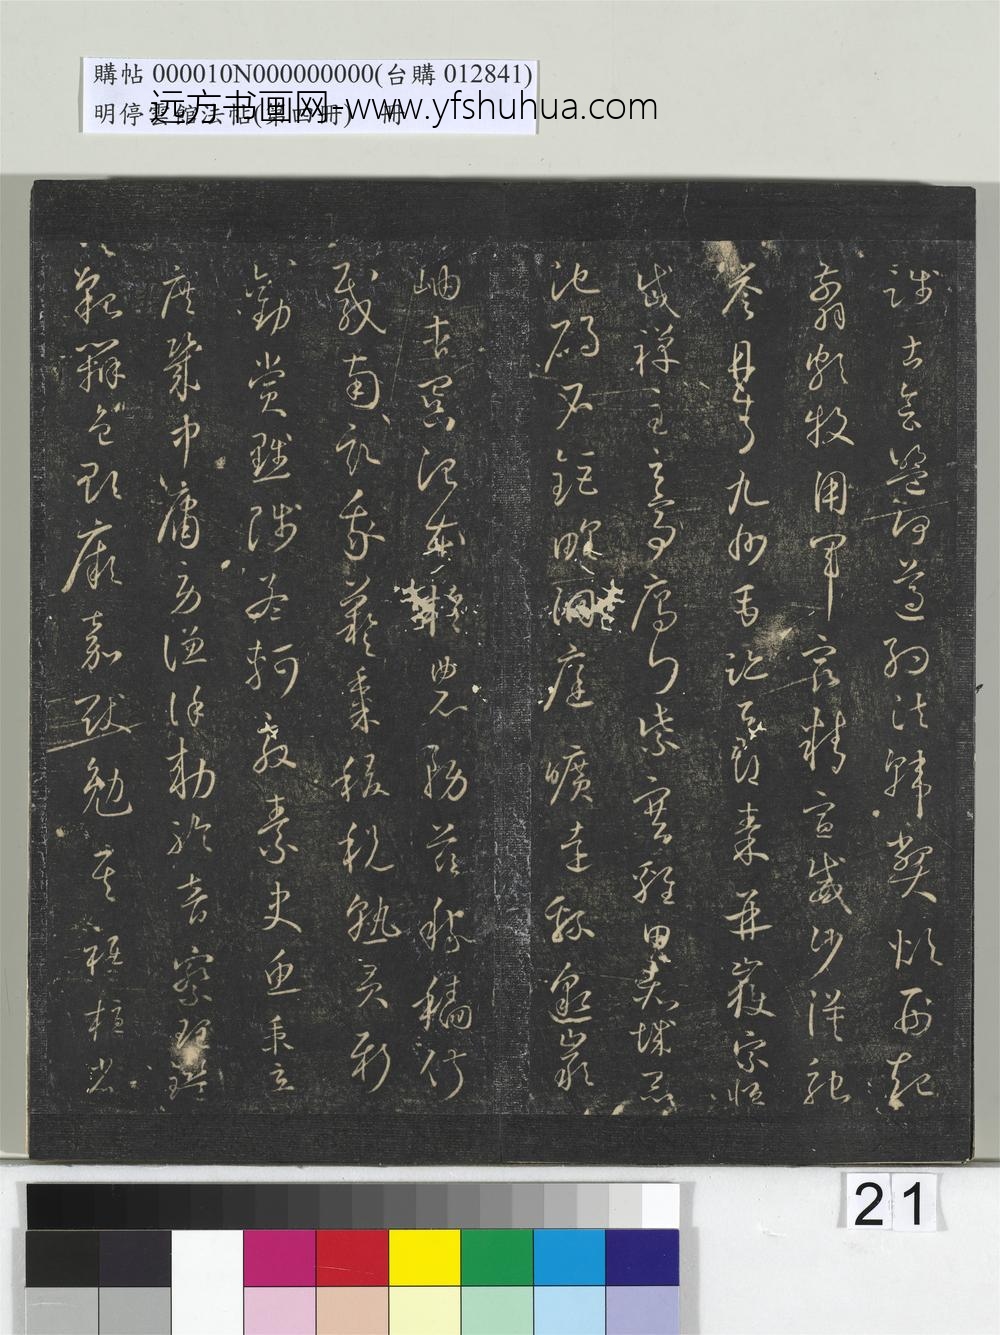 購帖 000010N000000000(台購 012841)
明停雲館法帖(第四冊) 冊
远方书画网-www.yfshuhua.com
踐土會盟何遵約法韓弊煩刑起
翦頗牧用軍最精宣威沙漠馳
譽丹青九州禹跡百郡秦并嶽宗恒
岱禪主云亭鴈門紫塞雞田赤城昆
池碣石鉅野洞庭曠遠綿邈巖
岫杳冥治本於農務茲稼穡俶
載南畝我藝黍稷稅熟貢新
勸賞黜陟孟軻敦素史魚秉直
庶幾中庸勞謙謹勅聆音察理鑒
貌辨色貽厥嘉猷勉其祗植省
21